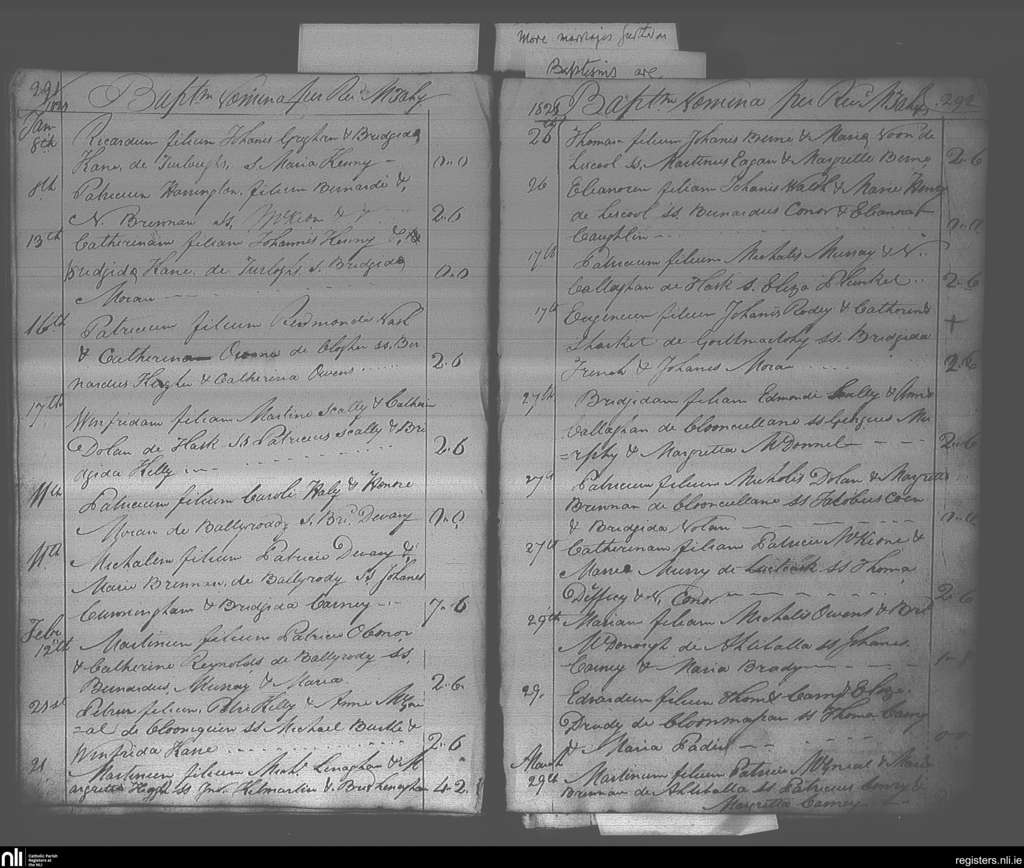 More marriages further on
Baptisms are
291
Baptm Nomina per Revd McGahy
Jan
8th Ricardum filium Johanis Geghan & Bridgida
Kane, de Turlaughs S. Maria Keiny - 0..0
8th Patricium Harrington, filium Bernardi &
N. Brennan ss, 2.6
13th Catherinam filiam Johannis Heiny & 
Bridgida Kane, de Turloghs S. Bridgida 0..0
Moran
16th Patricium filium Redmonda Nash
& Catherina Owens de Clogher ss. Ber
nardus Hegher & Catherina Owens 2.6
17th Winfridam filiam Martine Scally & Cathari
Dolan de Flask Ss Patricius Scally & Bri
dgida Kelly 2.6
11th Patricium filium Caroli Haly & Honore
Moran de Ballyroddy S. Brid Devany 0..0
11th Michalem filium Patricii Devany &
Marie Brennan, de Ballyrody Ss Johanes
Cunningham & Bridgida Carney 7.6
Febr
12th Martinum filium Patricii OConor
& Catherine Reynolds de Ballyrody ss.
Bernardus, Murray & Maria 2.6
21st Petrum filium, Petri Kelly & Anne McGre
=al de Clooniquin ss Michael Burke &
Winfrida Kane 2.6
21 Martinum filium Michl Lenaghan & M
argretta Higgs ss Jno. Kilmartin & Brid Heneghan 4.2
1828 Baptm Nomina per Revd McGahy 292
28 Thomam filium Johanis Beirne & Maria Noon de
Liscool ss. Martinus Eagan & Margrette Beirne 2.6
26 Elianoren filiam Johanis Walsh & Marie Henry
de Liscool ss Bernardus Conor & Elianora
Caughlin 0..0
17th Patricium filium Michalis Murray & N.
Callaghan de Flask S. Eliza Plunket 2.6
17th Eugenium filium Johanis Rodey & Catherina
Sharket de Gortnaclohy ss. Bridgida
French & Johanes Moran 2.6
27th Bridgidam filiam Edmondi Scally & Anne
Callaghan de Clooncullane ss Georgius Mu
=rphy & Margretta McDonnel 2..6
27th Patricium filium Micholis Dolan & Margretta
Brennan de Clooncullane ss Jacobus Coen
& Bridgida Nolan 0..0
27th Catherinam filiam Patricii McKione &
Marie Murry de ss Thoma
Diffley & N. Conor 2.6
29th Mariam filiam Michalis Owens & Brid
McDonough de Ahliballa ss Johanes
Carney & Maria Brady
29. Edvardum filium Thome Carny & Eliza
Drudy de Cloonmahan ss Thoma Carny
& Maria Padin 0..0
March
29th Martinum filium Patricii McGreal & Maria
Brennan de Ahliballa ss Patricius Conry &
Margretta Carney
nli Catholic Parish Registers at the NLI
registers.nli.ie